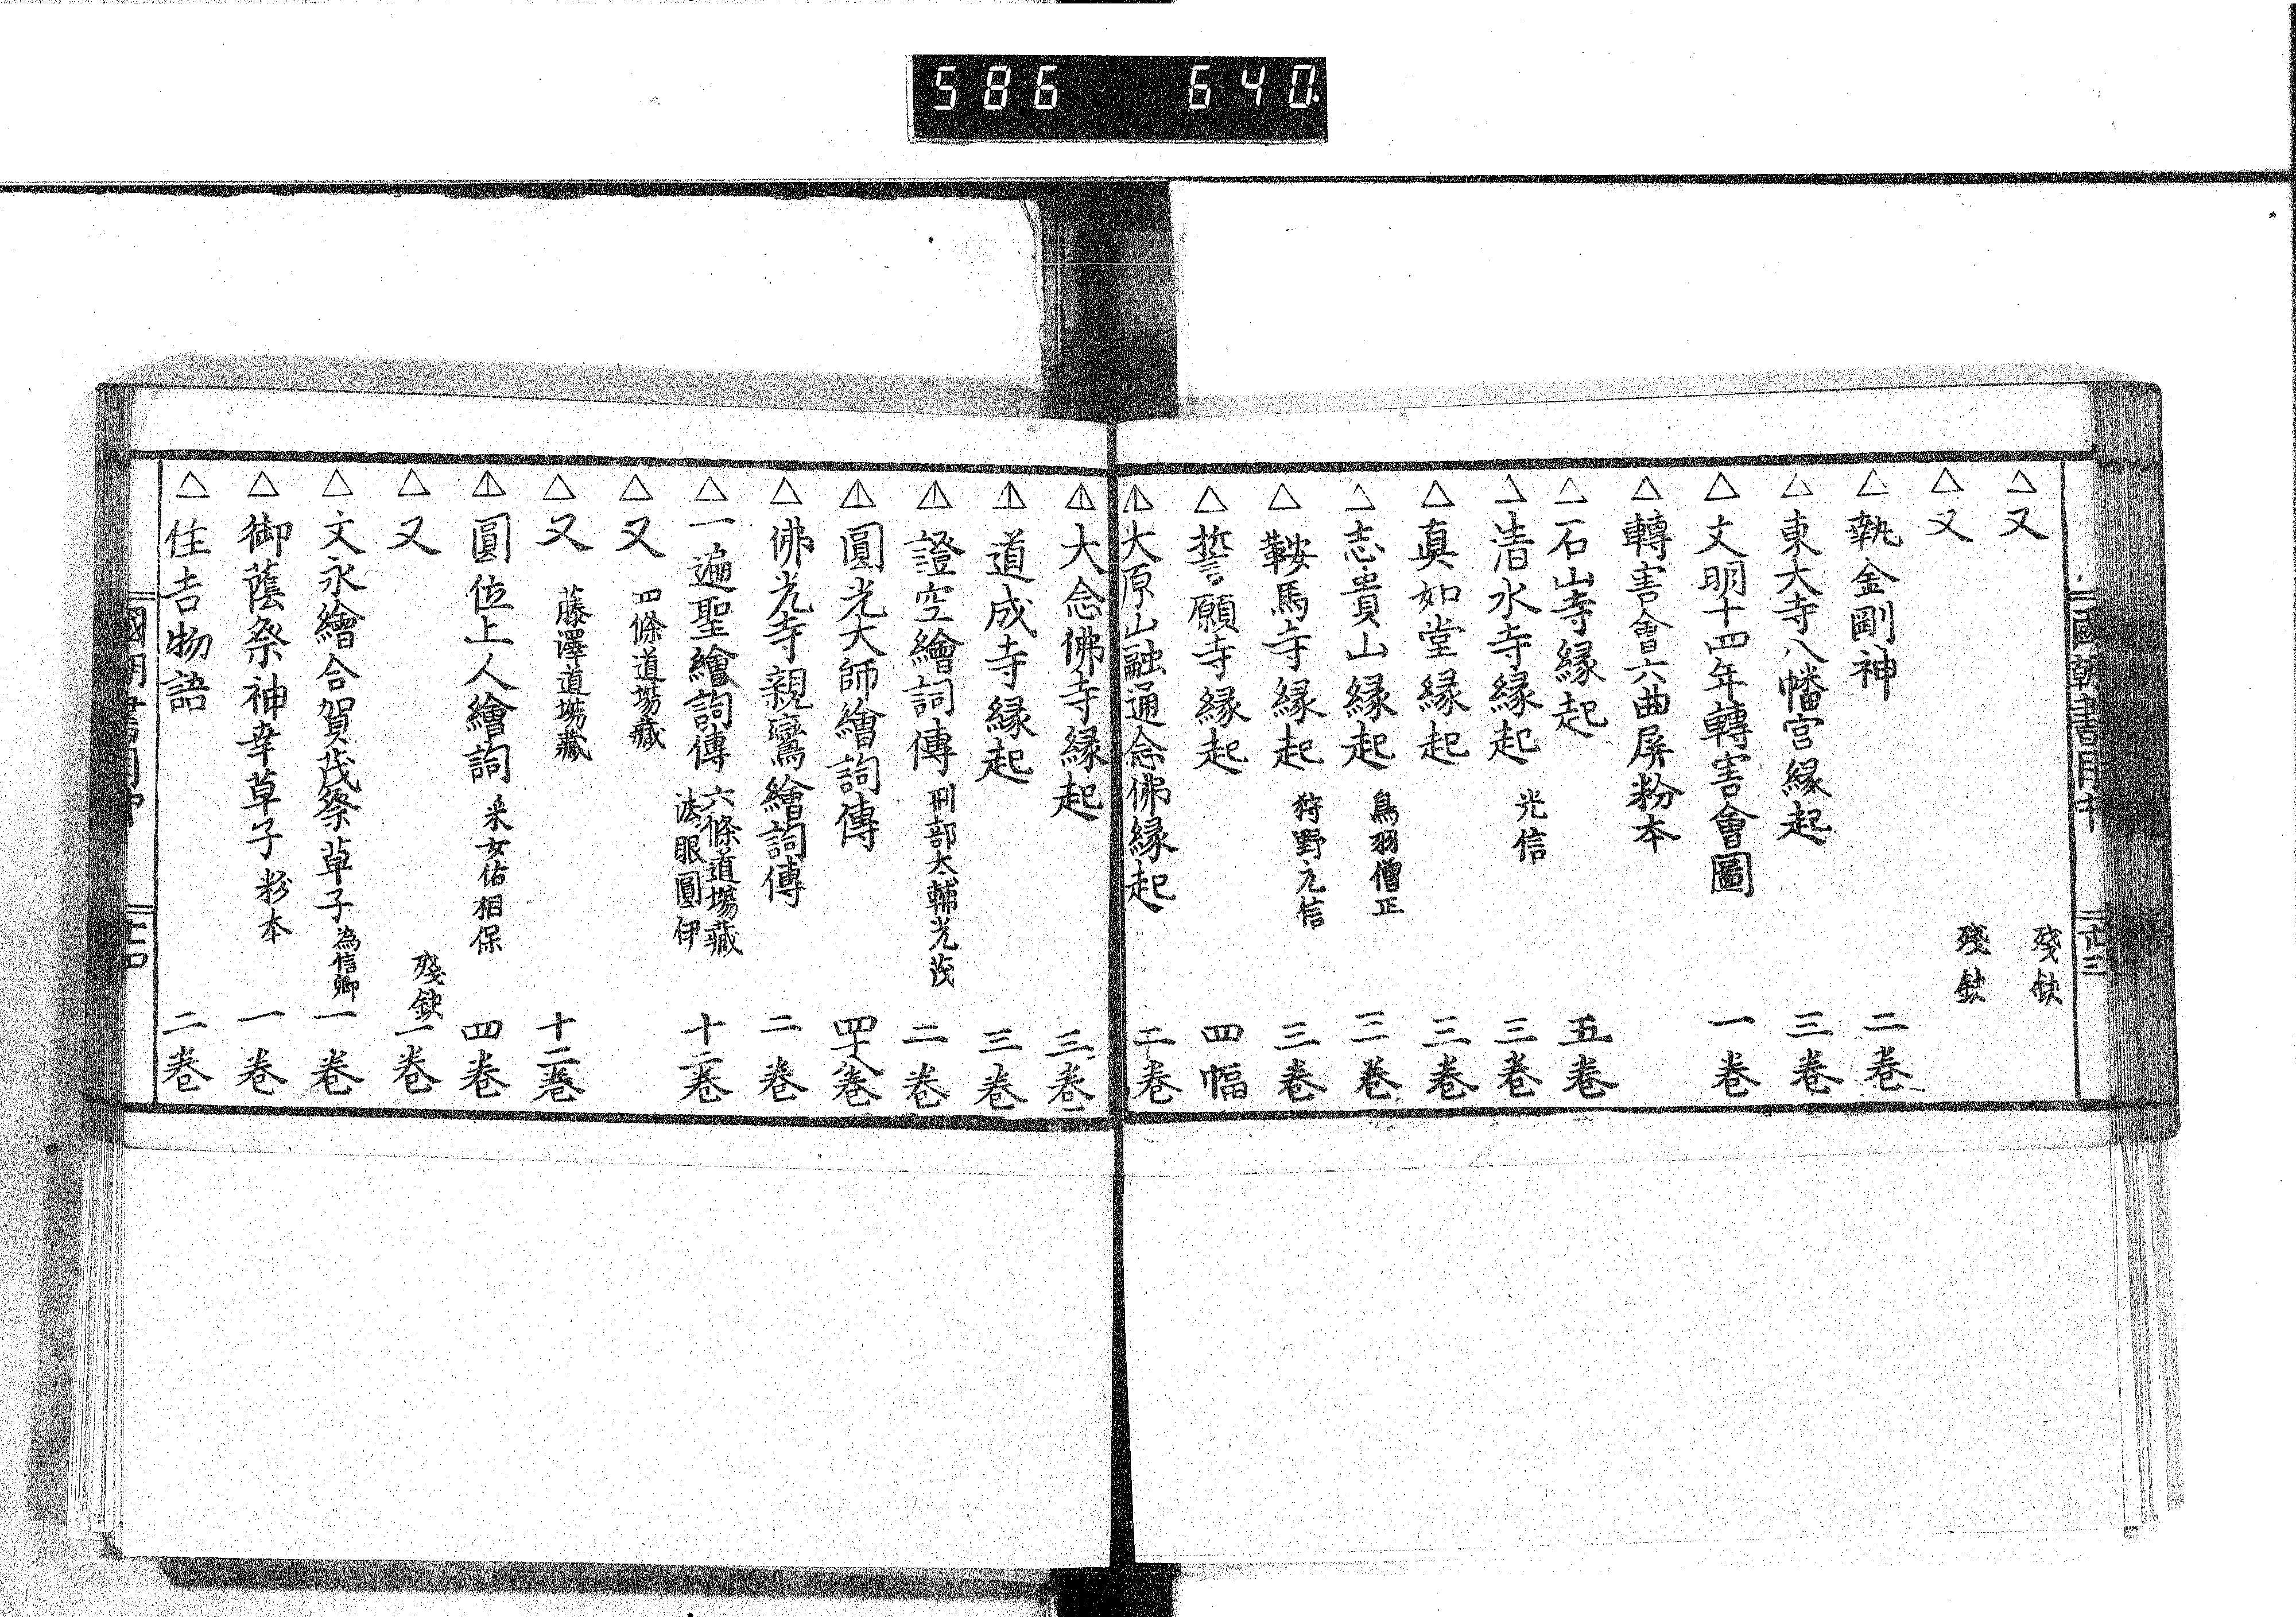 586 640.
△又 殘缺
△又 殘缺
△執金剛神 二卷
△東大寺八幡宮縁起 三卷
△文明十四年轉害會圖 一卷
△轉害會六曲屏粉本
△石山寺縁起 五卷
△清水寺縁起 光信 三卷
△真如堂縁起 三卷
△志貴山縁起 鳥羽僧正 三卷
△鞍馬寺縁起 狩野元信 三卷
△誓願寺縁起 四幅
△大原山融通念佛縁起 二卷
△大念佛寺縁起 三卷
△道成寺縁起 三卷
△證空繪詞傳 刑部太輔光茂 二卷
△圓光大師繪詞傳 四十八卷
△佛光寺親鸞繪詞傳 二卷
△一遍聖繪詞傳 六條道場藏 法眼圓伊 十二卷
△又 四條道場藏
△又 藤澤道場藏 十二卷
△圓位上人繪詞 采女佑相保 四卷
△又 殘缺 一卷
△文永繪合賀茂祭草子 為信卿 一卷
△御蔭祭神幸草子 粉本 一卷
△住吉物語 二卷